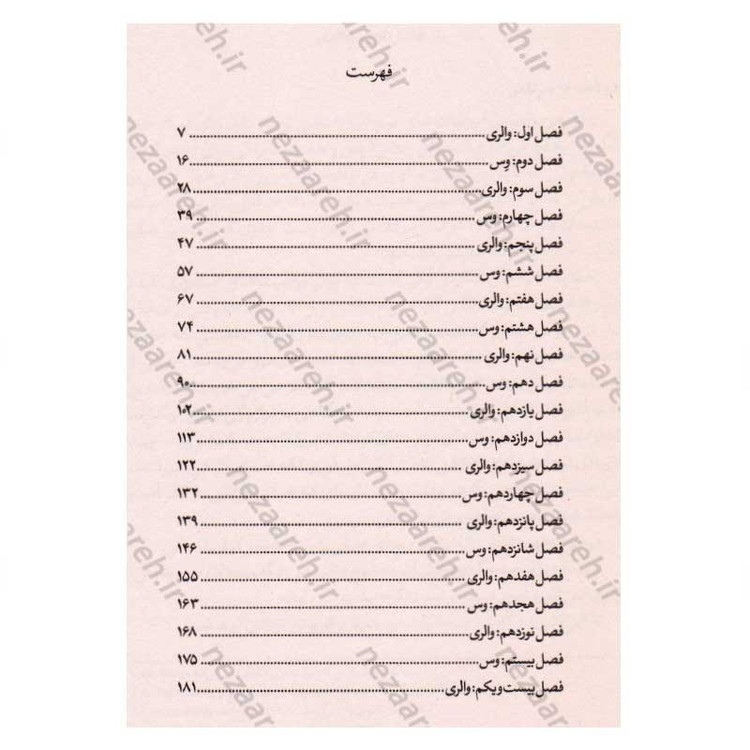 فهرست
فصل اول: والری ........ ۷
فصل دوم: وِس ........ ۱۶
فصل سوم: والری ........ ۲۸
فصل چهارم: وس ........ ۳۹
فصل پنجم: والری ........ ۴۷
فصل ششم: وس ........ ۵۷
فصل هفتم: والری ........ ۶۷
فصل هشتم: وس ........ ۷۴
فصل نهم: والری ........ ۸۱
فصل دهم: وس ........ ۹۰
فصل یازدهم: والری ........ ۱۰۲
فصل دوازدهم: وس ........ ۱۱۳
فصل سیزدهم: والری ........ ۱۲۲
فصل چهاردهم: وس ........ ۱۳۲
فصل پانزدهم: والری ........ ۱۳۹
فصل شانزدهم: وس ........ ۱۴۶
فصل هفدهم: والری ........ ۱۵۵
فصل هجدهم: وس ........ ۱۶۳
فصل نوزدهم: والری ........ ۱۶۸
فصل بیستم: وس ........ ۱۷۵
فصل بیست‌ویکم: والری ........ ۱۸۱
nezaareh.ir